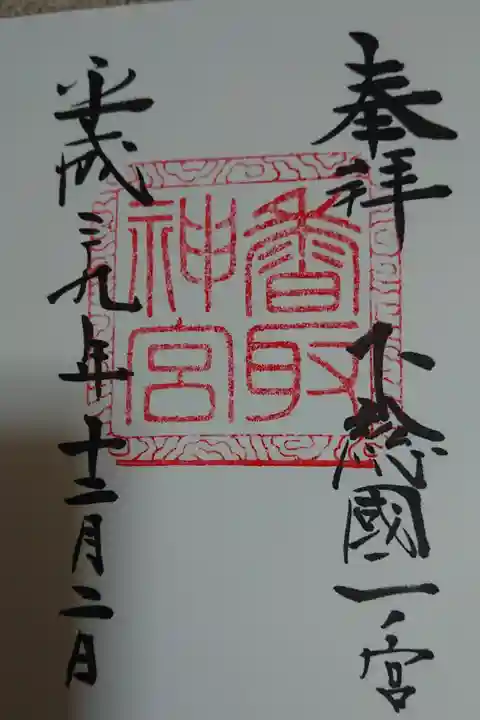 奉拝
下総國一宮
香取
神宮
平成二九年十二月二日